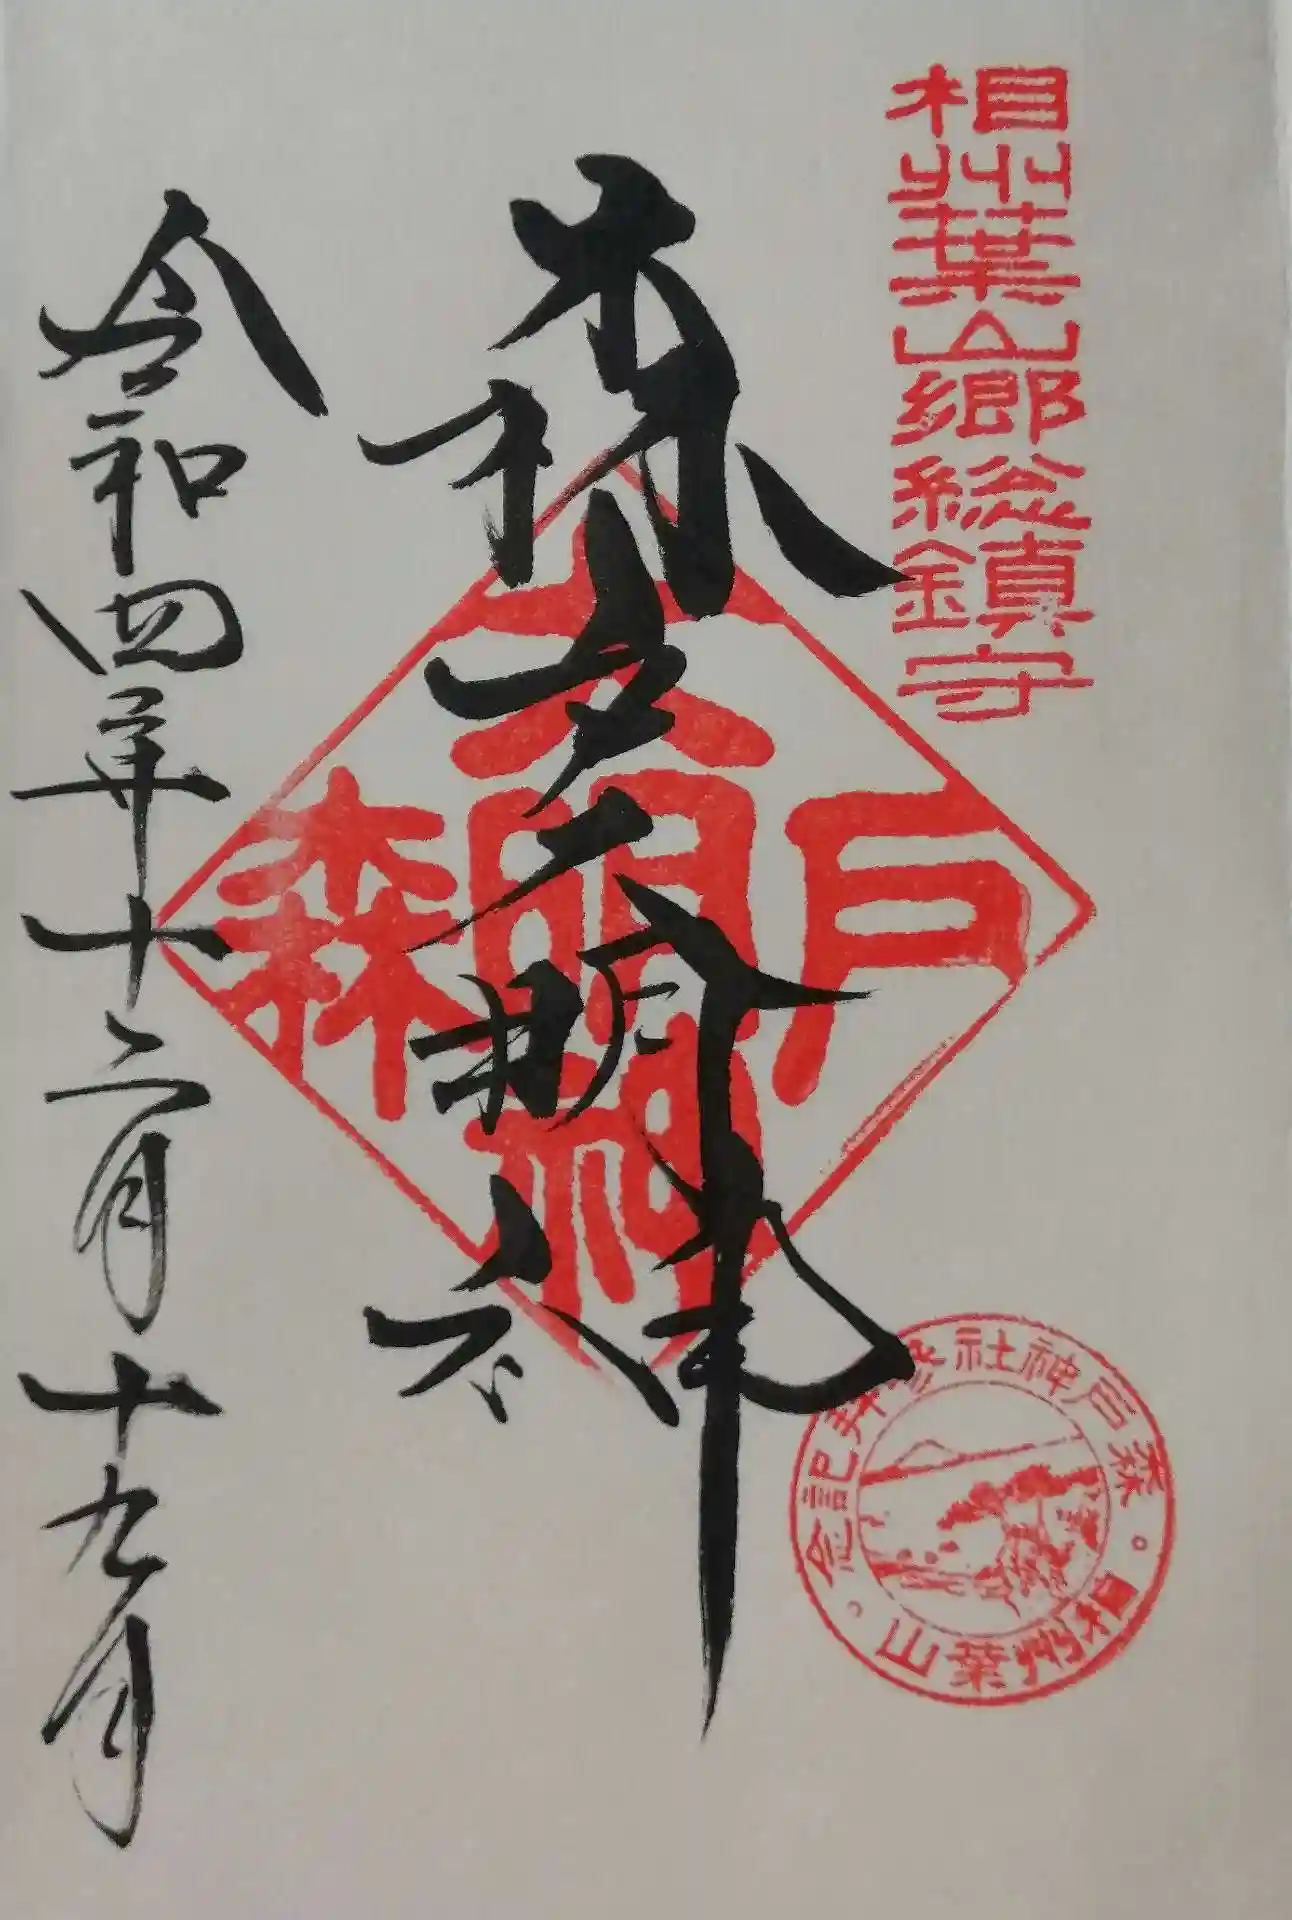 相州葉山郷総鎮守
森戸大明神
森戸大明神
森戸神社参拝記念
相州葉山
令和四年十二月十九日